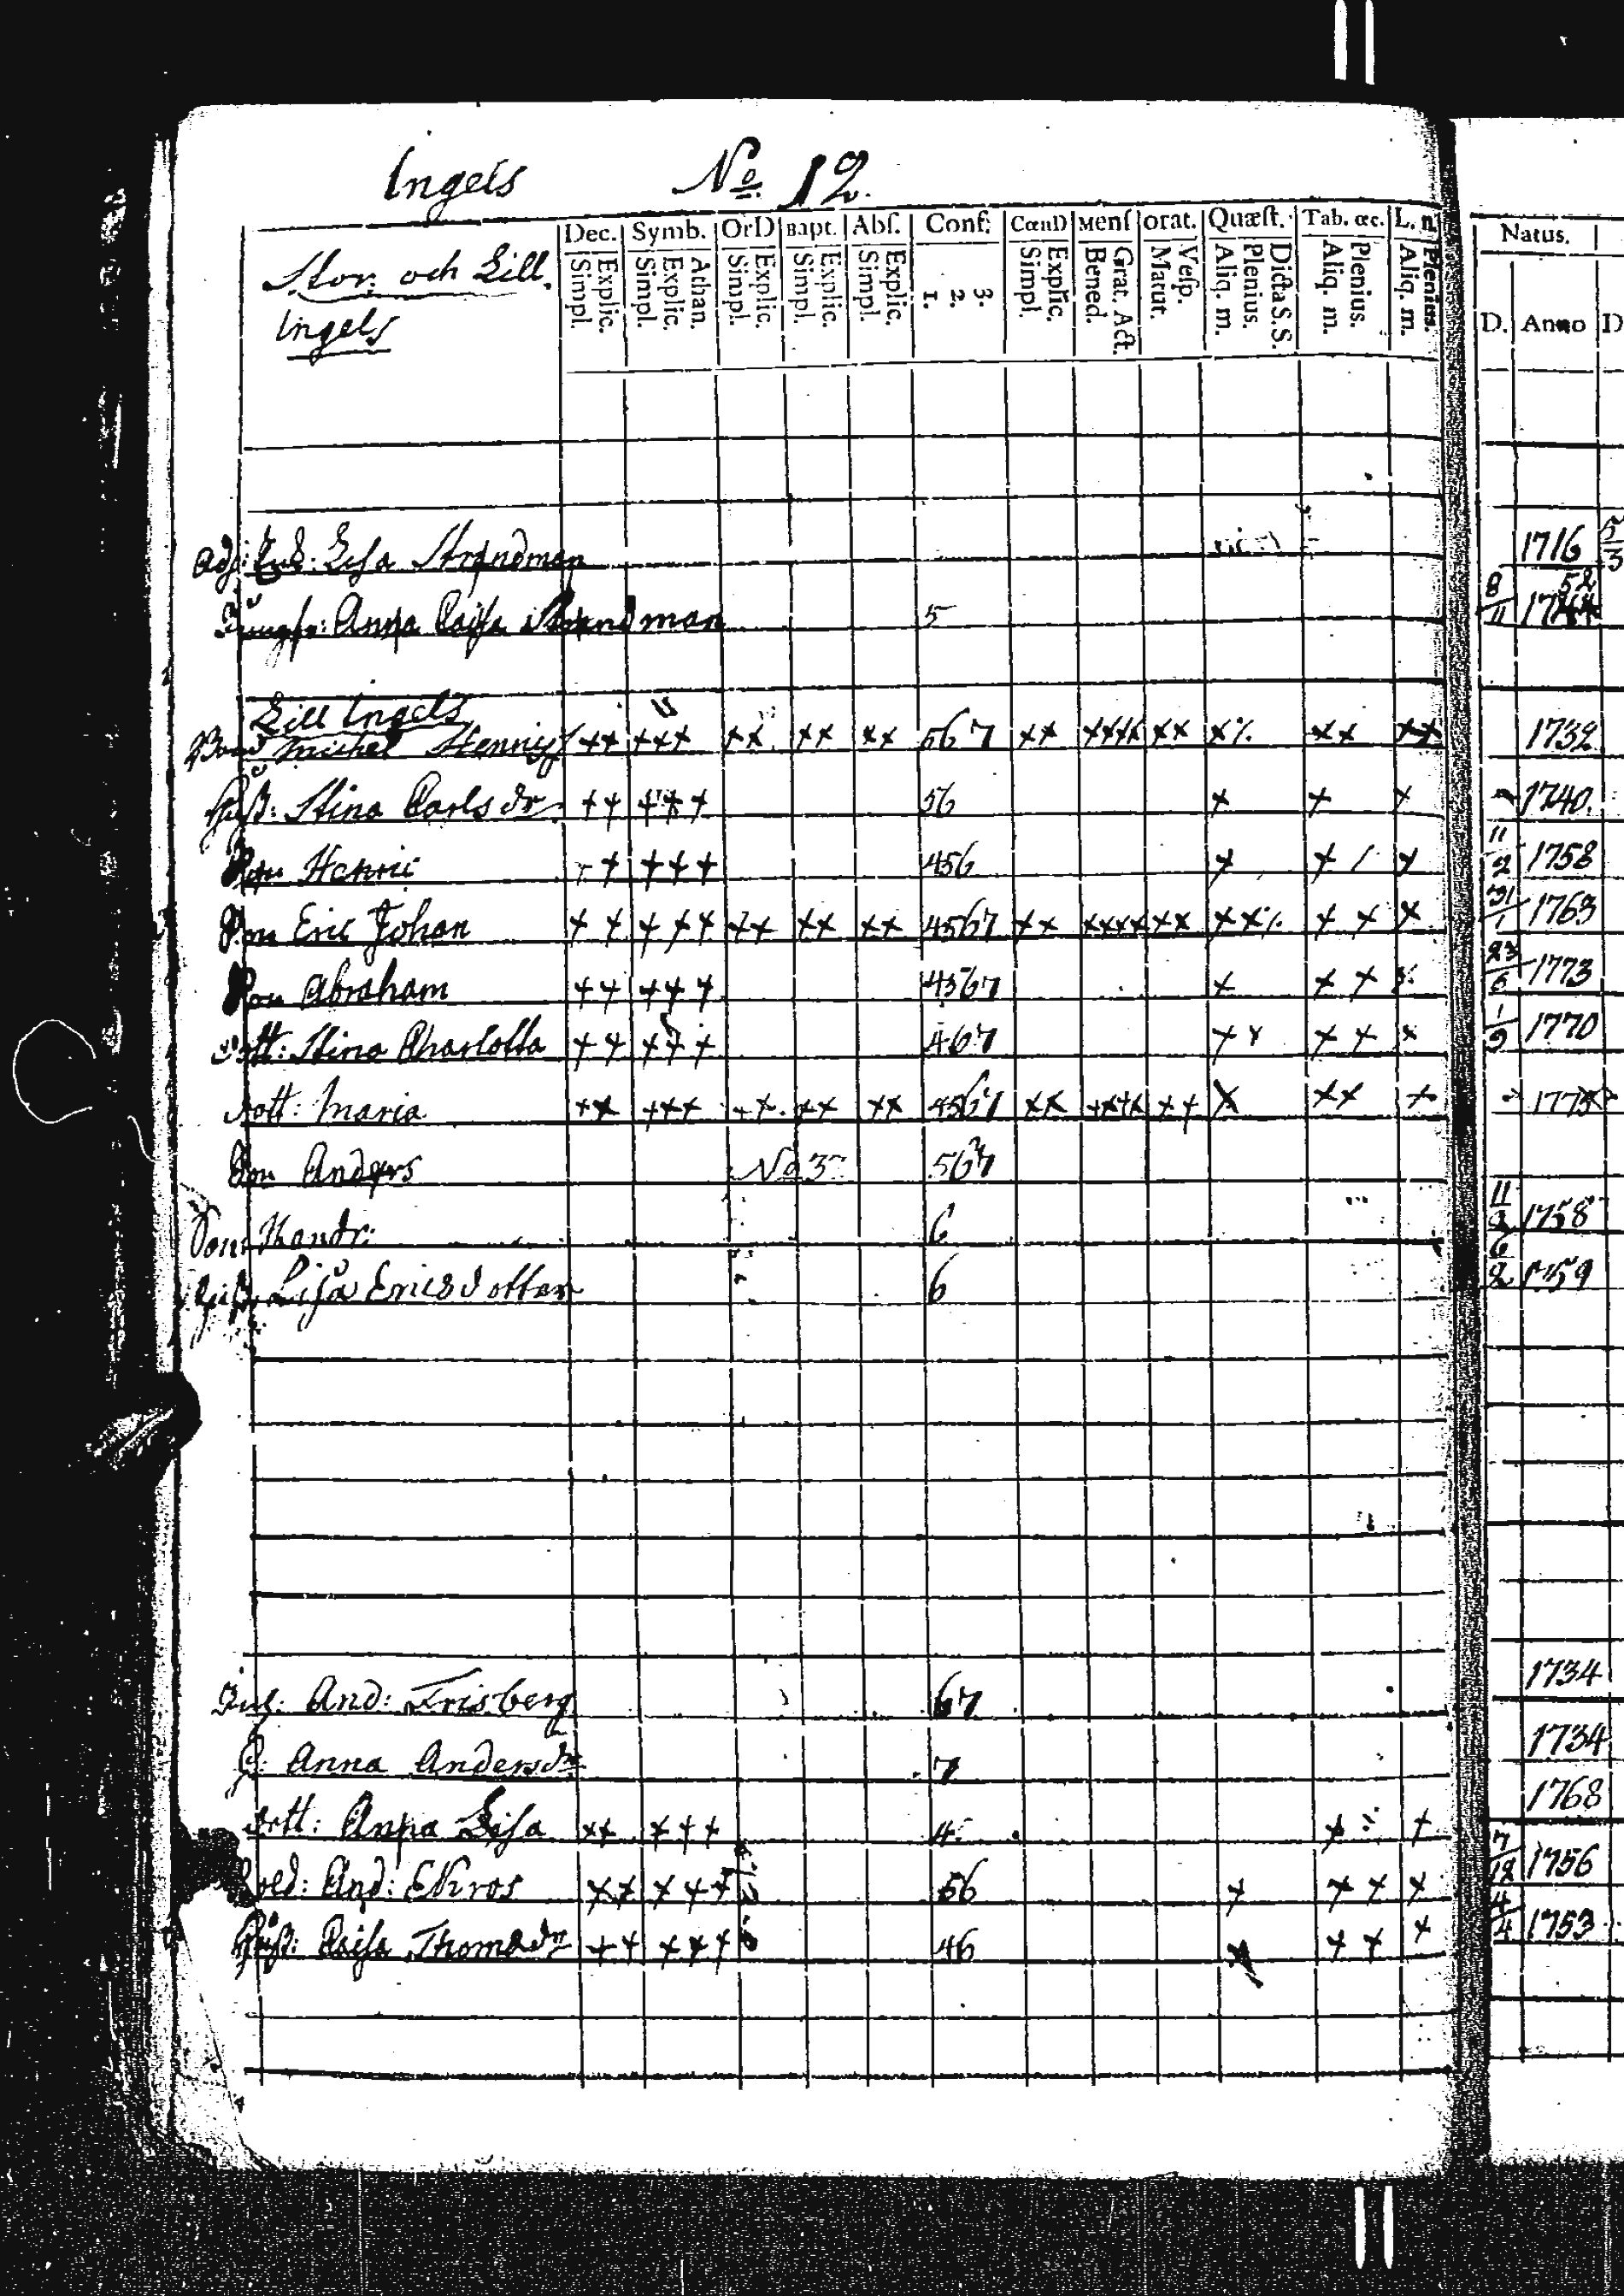 Ingels No 12.
Stor och Lill. Ingels
Dec. Symb. OrD Bapt. Abſ. Conf. CœnD Menſ orat. Quæſt. Tab. œc. L. n. Natus.
Simpl. Explic. Simpl. Explic. Athan. Simpl. Explic. Simpl. Explic. Simpl. Explic. 1. 2. 3. Simpl. Explic. Bened. Grat. Act. Matut. Veſp. Aliq. m. Plenius. Dicta S.S. Aliq. m. Plenius. Aliq. m. Plenius. D. Anno D
Lisa Strandman 1716 5/3
Anna Caisa Strandman 5 8/11
Lill Ingels
Michel ++ +++ ++ ++ ++ 567 ++ ++++ ++ +% ++ ++ 1732
Stina Carlsdr ++ +++ 56 + + + 1740.
Son Henric ++ +++ 456 + + / + 11/2 1758
Son Eric Johan ++ +++ ++ ++ ++ 4567 ++ ++++ ++ ++% ++ + 31/1 1763
Son Abraham ++ +++ 4567 + ++ 23/6 1773
dott: Stina Charlotta ++ +++ 467 ++ ++ + 1/9 1770
dott: Maria ++ +++ ++ ++ ++ 4567 ++ ++++ ++ + ++ +
Son Anders No 3 567
6 11/2 1758
Lisa Ericsdotter 6 6/2 1759
And: Frisberg 67 1734
Anna Andersdr 7 1734
dott: Anna Lisa ++ +++ 4 + + 1768
And: Ekros ++ +++ 56 + ++ + 7/12 1756
Caisa Thomadr ++ +++ 46 ++ + 4/4 1753